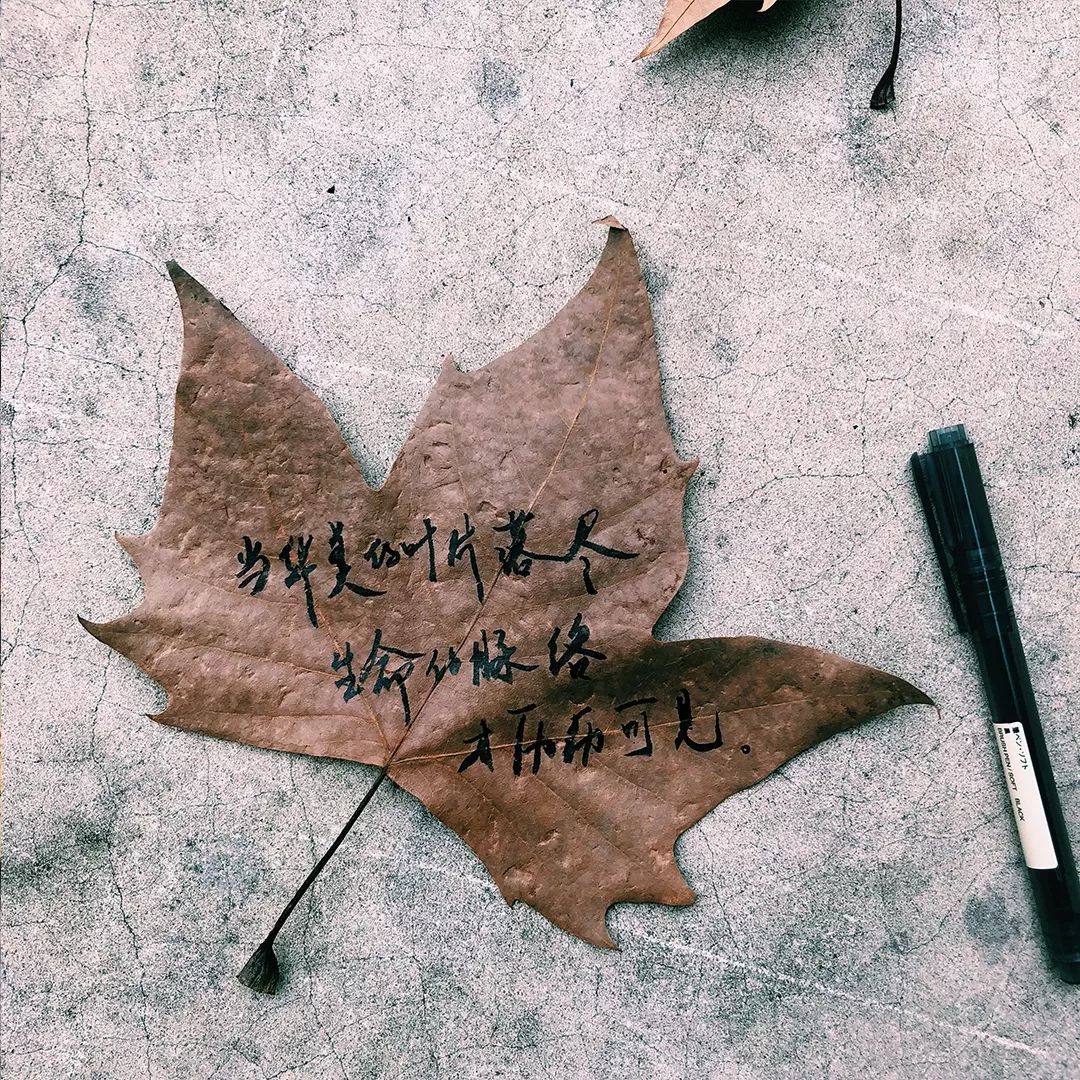 当华美的叶片落尽
生命的脉络
才历历可见。
筆ペン・ソフト
BRUSH PEN / SOFT BLACK